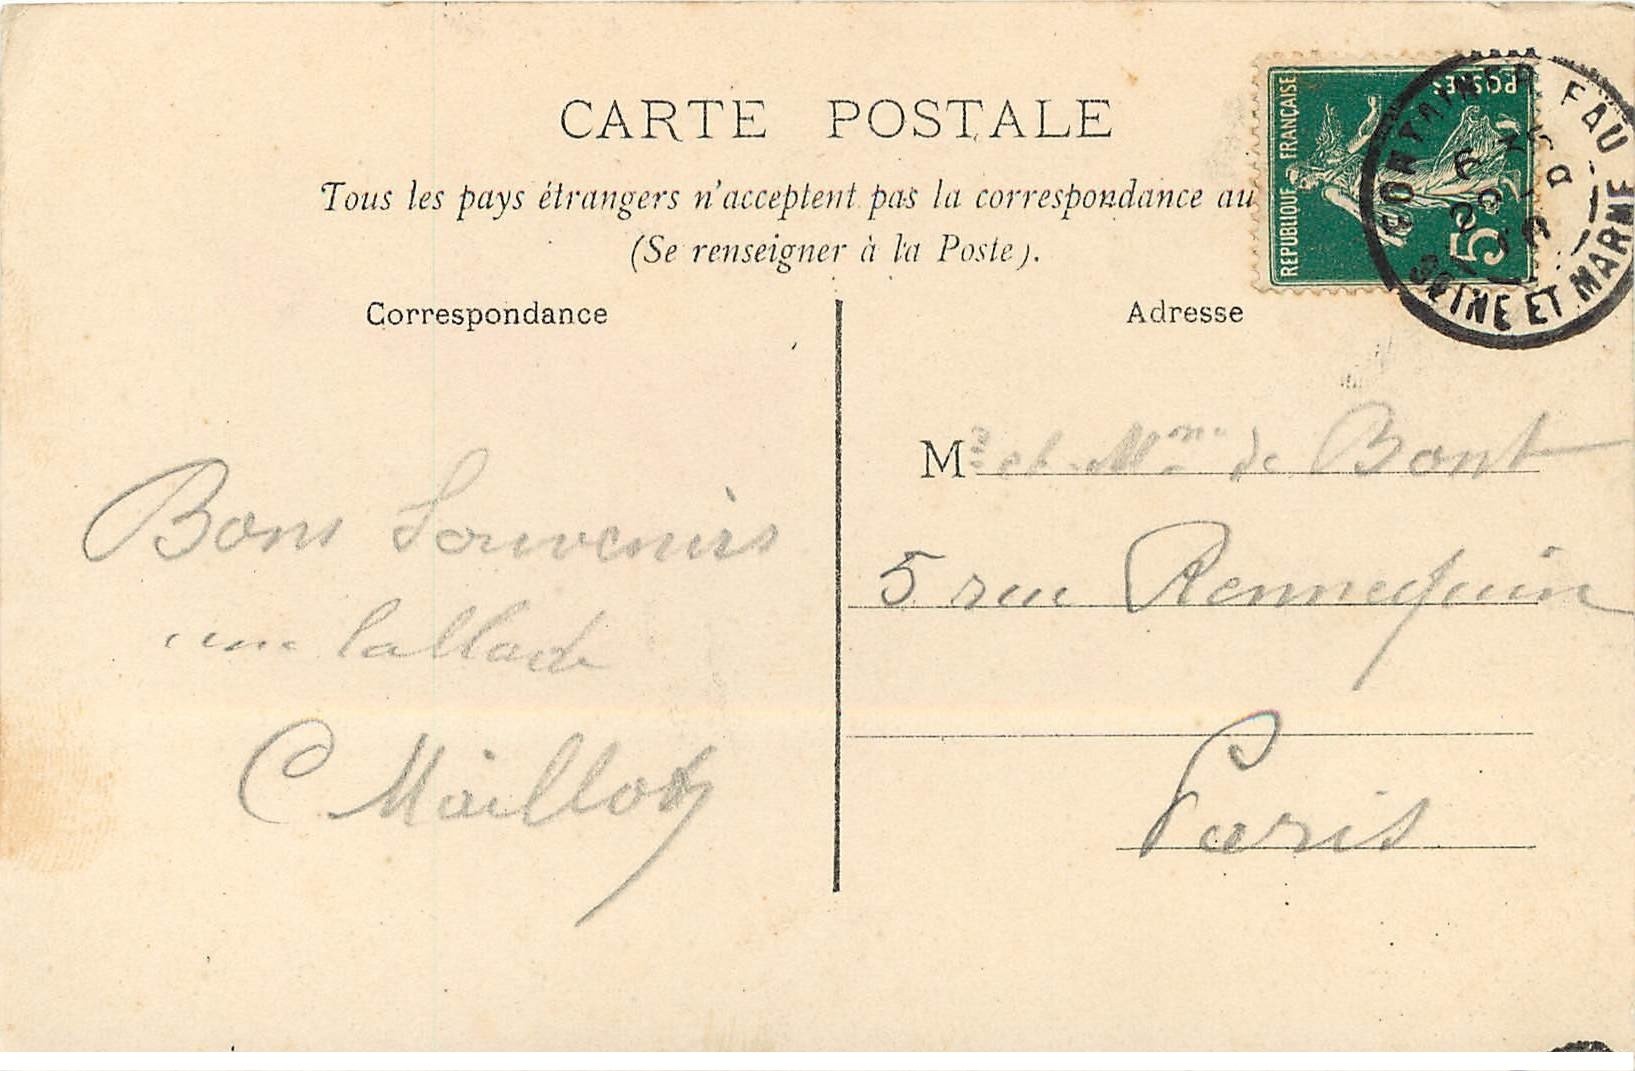 CARTE POSTALE
Tous les pays étrangers n'acceptent pas la correspondance au
(Se renseigner à la Poste).
Correspondance
Adresse
REPUBLIQUE FRANÇAISE
POSTES
5c
SEINE ET MARNE
Bons Souvenirs
C Maillot
Mr et Mme de Bont
5 rue Rennequin
Paris